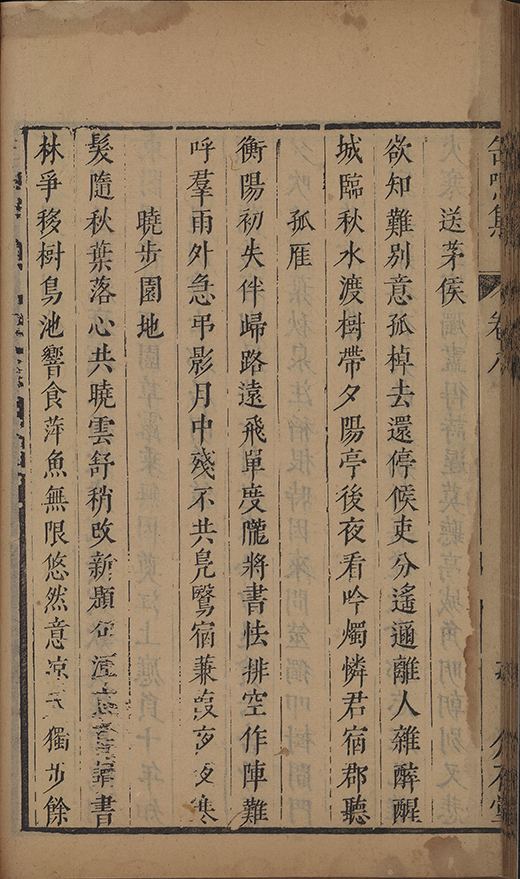 送茅侯
欲知難別意孤棹去還停候吏分遙邇離人雜醉醒
城臨秋水渡樹帶夕陽亭後夜看吟燭憐君宿郡聽
孤雁
衡陽初失伴歸路遠飛單度隴將書怯排空作陣難
呼羣雨外急弔影月中殘不共鳧鷖宿蒹葭夜夜寒
曉步園地
髮隨秋葉落心共曉雲舒稍改新題書
林爭移樹鳥池響食萍魚無限悠然意涼天獨步餘
集
卷八